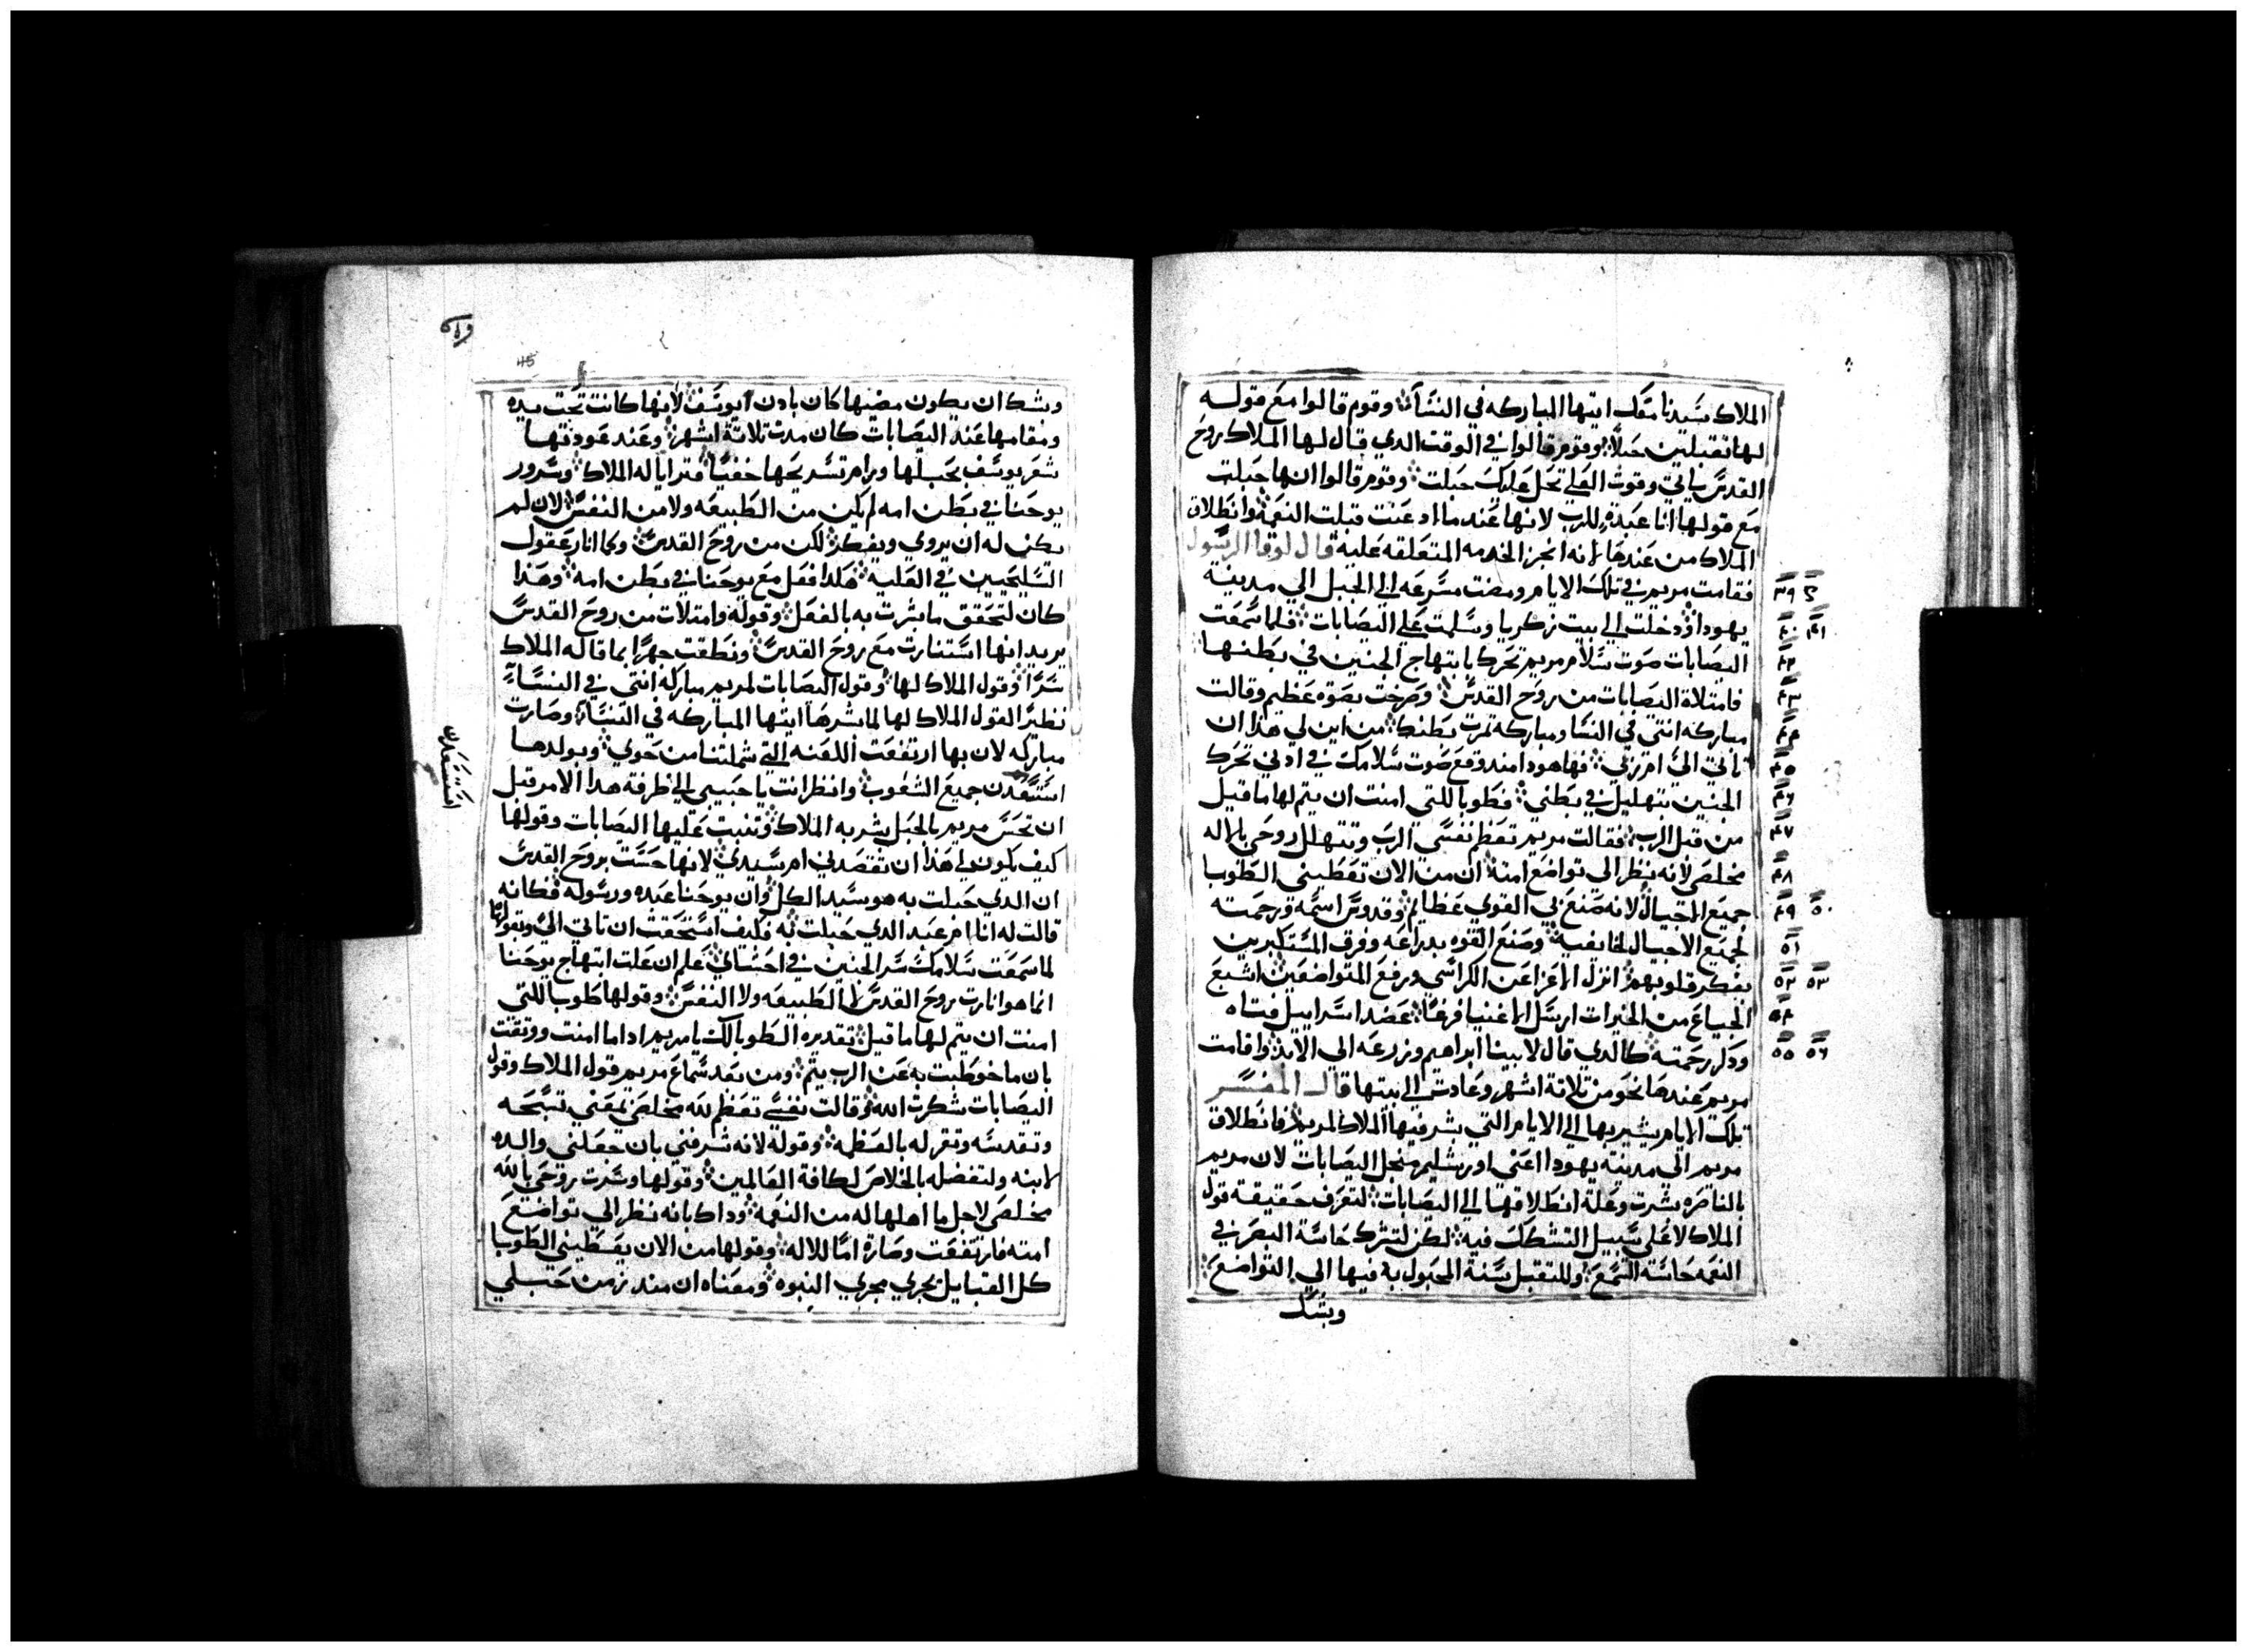 الملاك سيدنا معك ايتها المباركه في النسآ وقوم قالوا مع قوله
لها تقبلين حبلاً وقوم قالوا في الوقت الدي قال لها الملاك روح
القدس ياتي وقوت العلي تحل عليك حبلت وقوم قالوا انها حبلت
مع قولها انا عبدة للرب لانها عند ما ادعنت قبلت النعمه وانطلاق
الملاك من عندها لانه انجز الخدمه المتعلقه عليه قال لوقا الرسول
فقامت مريم في تلك الايام ومضت مسرعه الي الجبل الي مدينة
يهودا ودخلت الي بيت زكريا وسلمت علي اليصابات فلما سمعت
اليصابات صوت سلام مريم تحرك بابتهاج الجنين في بطنها
فامتلاة اليصابات من روح القدس وصرخت بصوة عظيم وقالت
مباركه انتي في النسا ومباركة تمرت بطنك من اين لي هذا ان
تاتي الي ام ربي فها هودا مند وقع صوت سلامك في ادني تحرك
الجنين بتهليل في بطني فطوبا للتي امنت ان يتم لها ما قيل
من قبل الرب فقالت مريم تعظم نفسي الرب وتتهلل روحي بالاله
مخلصي لانه نظر الي تواضع امته ان من الان تعطيني الطوبا
جميع الاجيال لانه صنع بي القوي عظايم وقدوس اسمه ورحمته
لجميع الاجيال لخايفيه وصنع القوه بدراعه وفرق المستكبرين
بفكر قلوبهم انزل الاعزا عن الكراسي ورفع المتواضعين اشبع
الجياع من الخيرات ارسل الاغنيا فرغًا عضد اسراييل فتاه
ودكر رحمته كالدي قال لابينا ابراهيم وزرعه الي الابد واقامت
مريم عندها نحو من تلاتة اشهر وعادت الي بيتها قال المفسر
تلك الايام يشير بها الي الايام التي بشر فيها الملاك لمريم فانطلاق
مريم الي مدينة يهودا اعني اورشليم منجل اليصابات لان مريم
بالناصره بشرت وعلة انطلاقها الي اليصابات لتعرف حقيقة قول
الملاك لا علي سبيل التشكك فيه لكن لتشرك حاسة البصر في
النعمه حاسة السمع وللتقبل سنة المجبول به فيها الي التواضع
وبشك
٣٩ ٤٠ ٤١ ٤٢ ٤٣ ٤٤ ٤٥ ٤٦ ٤٧ ٤٨ ٤٩ ٥٠ ٥١ ٥٢ ٥٣ ٥٤ ٥٥ ٥٦
45
وبشك ان يكون مضيها كان بادن ايوسف لانها كانت تحت يده
ومقامها عند اليصابات كان مدت تلاتة اشهر وعند عودتها
شعر يوسف بحبلها ورام تسريحها خفيًا فترايا له الملاك وسرور
يوحنا في بطن امه لم يكن من الطبيعه ولا من النفس لان لم
يكن له ان يروي ويفكر لكن من روح القدس وكما انار عقول
السليحيين في العليه هكدا فعل مع يوحنا في بطن امه وهذا
كان لتحقق ما بشرت به بالفعل وقوله وامتلات من روح القدس
يريد انها استنارت مع روح القدس ونطقت جهرًا بما قاله الملاك
سرًا وقول الملاك لها وقول اليصابات لمريم مباركه انتي في النسآ
نظير القول الملاك لها لما بشرها ايتها المباركه في النسآ وصارت
مباركه لان بها ارتفعت اللعنه التي شملتنا من حوي وبولدها
استسعدن جميع الشعوب وانظر انت يا حبيبي الي ظرفة هدا الامر قبل
ان تحس مريم بالحبل بشر به الملاك وتنبت عليها اليصابات وقولها
كيف يكون لي هذا ان تقصدني ام سيدي لانها حست بروح القدس
ان الدي حبلت به هو سيد الكل وان يوحنا عبده ورسوله فكانه
قالت له انا ام عبد الدي حبلت به فكيف استحقت ان تاتي الي وبقولها
لما سمعت سلامك سر الجنين في احشاي علم ان علت ابتهاج يوحنا
انما هو انارت روح القدس لا الطبيعه ولا النفس وقولها طوبا للتي
امنت ان يتم لها ما قيل تقديره الطوبا لك يا مريم ادا ما امنت ووتقت
بان ما خوطبت به عن الرب يتم ومن بعد سماع مريم قول الملاك وقول
اليصابات شكرت الله وقالت نفسي تعظم لله مخلصي بمعني تسبحه
وتقدسه وتقر له بالعظمه وقوله لانه شرفني بان جعلني والده
لابنه ولتفضله بالخلاص لكافة العالمين وقولها وسرت روحي بالله
مخلصي لاجل ما اهلها له من النعمه وداك بانه نظر الي تواضع
امته فارتفعت وصارة امًا للاله وقولها من الان يعطيني الطوبا
كل القبايل يجري مجري النبوه ومعناه ان مند زمن حبلي
استسعدن